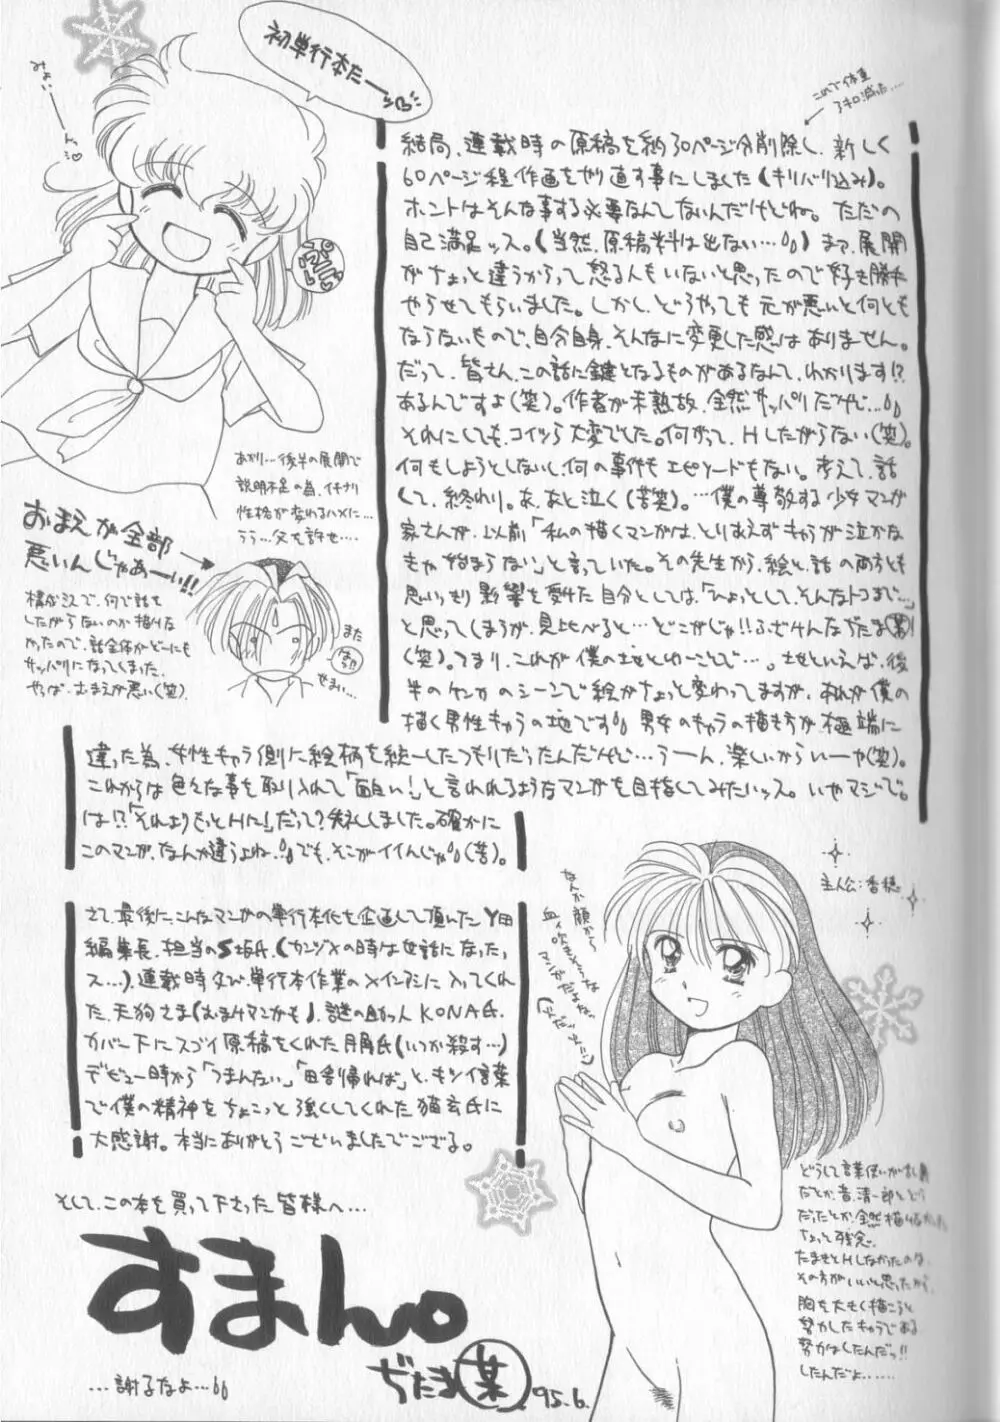 初単行本だー
これで体重
3キロ減った....
結局、連載時の原稿を約30ページ分削除し、新しく
60ページ程作画をやり直す事にしました(キリバリ込み)。
ホントはそんな事する必要なんてないんだけどね。ただの
自己満足ッス。(当然、原稿料は出ない…)まァ、展開
がちょっと違うからって怒る人もいないと思ったので好き勝手
やらせてもらいました。しかし、どうやっても元が悪いと何とも
ならないもので、自分自身、そんなに変更した感はありません。
だって、皆さん、この話に鍵となるものがあるなんて、わかります!?
あるんですよ(笑)。作者が未熟故、全然サッパリだけど…
それにしても、コイツら大変でした。何がって、Hしたがらない(笑)。
何もしようとしないし、何の事件もエピソードもない。考えて、話
して、終わり。あ、あと泣く(苦笑)。…僕の尊敬する少女マンガ
家さんが、以前「私の描くマンガは、とりあえずキャラが泣かな
きゃ始まらない」と言っていた。その先生から、絵と、話の両方とも
思いっきり影響を受けた自分としては、「ひょっとして、そんなトコまで…」
と思ってしまうが、見比べると…どこがじゃ!!ふざけんなぢたま(某)!
(笑)。つまり、これが僕の地とゆーことで…。地といえば、後
半のケンカのシーンで絵がちょっと変わってますが、あれが僕の
描く男性キャラの地です 男女のキャラの描き方が極端に
違った為、女性キャラ側に絵柄を統一したつもりだったんだけど…うーん、楽しいからいーや(笑)。
これからは色々な事を取り入れて「面白い!」と言われるようなマンガを目指してみたいッス。いやマジで。
は!?「それよりもっとHに!」だって?失礼しました。確かに
このマンガ、なんか違うよね、でも、そこがイイんじゃ(苦)。
あかり…後半の展開で
説明不足の為、イキナリ
性格が変わるハメに…
うう…父を許せ….
おまえが全部
悪いんじゃあーい!!
構成ミスで、何で話を
したがらないのか描けな
かったので、話全体がどーにも
サッパリになってしまった
やっぱ、おまえが悪い(笑)。
また
せまい…
さて、最後に、こんなマンガの単行本化を企画して頂いたY田
編集長、担当のS坂氏、(カンヅメの時は世話になった
ス…)、連載時及び、単行本作業のメインアシに入ってくれ
た、天狗さま(おまけマンガも)、謎の助っ人KONA氏、
カバー下にスゴイ原稿をくれた月角氏(いつか殺す…)
デビュー時から「つまんない」「田舎帰れば」と、キツイ言葉
で僕の精神をちょこっと強くしてくれた猫玄氏に
大感謝。本当にありがとうございましたでござる。
主人公:香穂
なんか顔から
どうして言葉使いが
だとか、昔、清一郎とどう
だったとか、全然描けなかった
ちょって残念、
たまきとHしなかったのは、
その方がいいと思ったから、
胸を大きく描こうと
努力したキャラである
努力はしたんだっ!!
したんだよ……
そして、この本を買って下さった皆様へ…
すまん。
…謝るなよ…
ぢたま(某) '95.6.